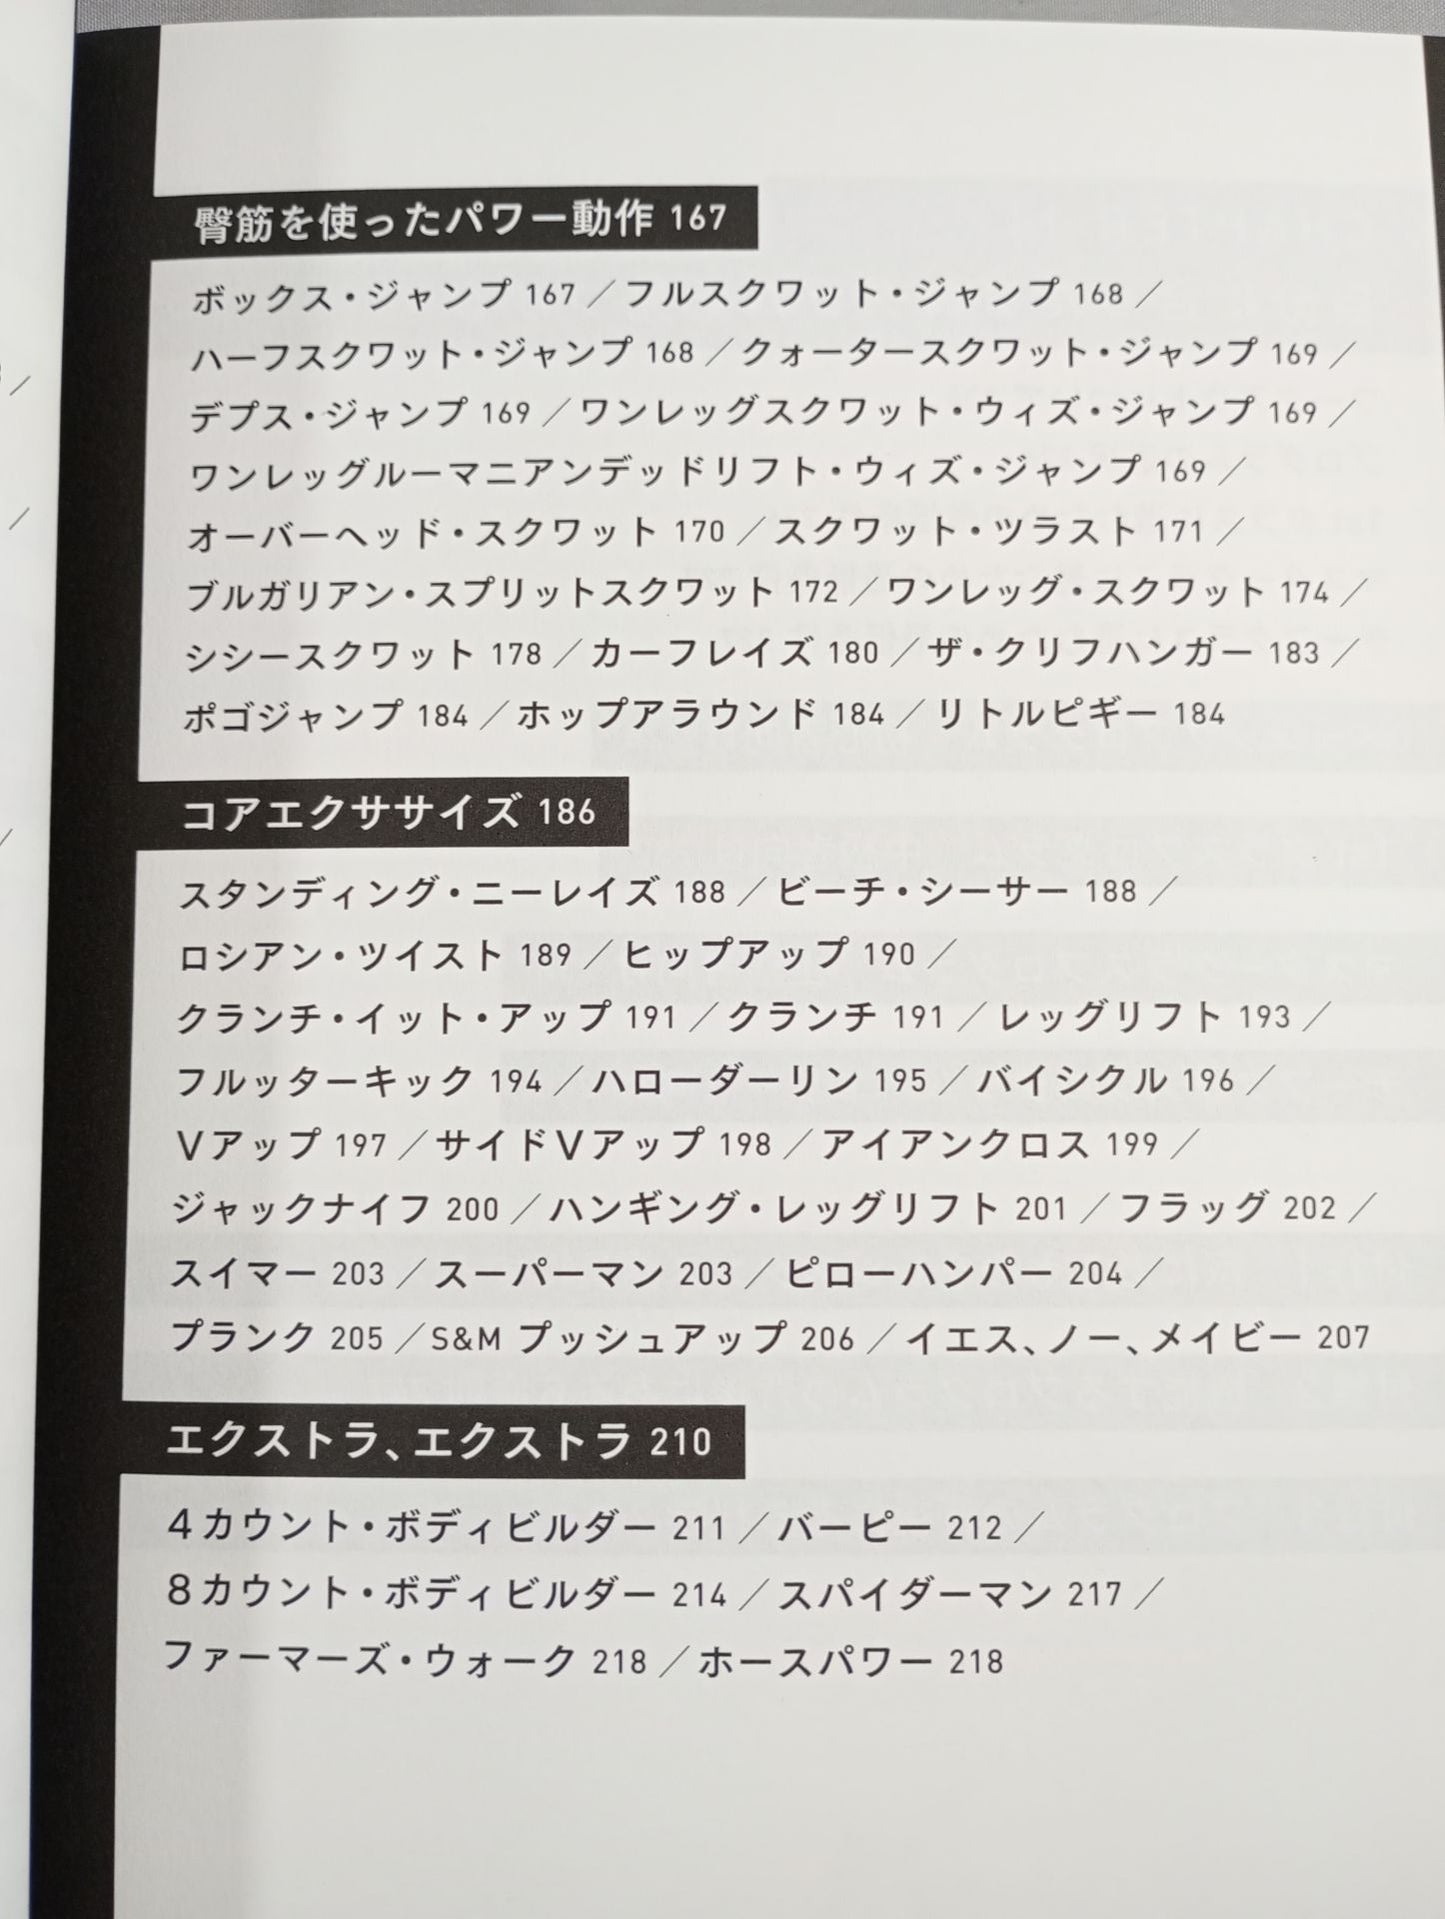 臀筋を使ったパワー動作 167
ボックス・ジャンプ 167 ／フルスクワット・ジャンプ 168 ／
ハーフスクワット・ジャンプ 168 ／クォータースクワット・ジャンプ 169 ／
デプス・ジャンプ 169 ／ワンレッグスクワット・ウィズ・ジャンプ 169 ／
ワンレッグルーマニアンデッドリフト・ウィズ・ジャンプ 169 ／
オーバーヘッド・スクワット 170 ／スクワット・ツラスト 171 ／
ブルガリアン・スプリットスクワット 172 ／ワンレッグ・スクワット 174 ／
シシースクワット 178 ／カーフレイズ 180 ／ザ・クリフハンガー 183 ／
ポゴジャンプ 184 ／ホップアラウンド 184 ／リトルピギー 184
コアエクササイズ 186
スタンディング・ニーレイズ 188 ／ビーチ・シーサー 188 ／
ロシアン・ツイスト 189 ／ヒップアップ 190 ／
クランチ・イット・アップ 191 ／クランチ 191 ／レッグリフト 193 ／
フルッターキック 194 ／ハローダーリン 195 ／バイシクル 196 ／
Ｖアップ 197 ／サイドＶアップ 198 ／アイアンクロス 199 ／
ジャックナイフ 200 ／ハンギング・レッグリフト 201 ／フラッグ 202 ／
スイマー 203 ／スーパーマン 203 ／ピローハンパー 204 ／
プランク 205 ／S&M プッシュアップ 206 ／イエス、ノー、メイビー 207
エクストラ、エクストラ 210
４カウント・ボディビルダー 211 ／バーピー 212 ／
８カウント・ボディビルダー 214 ／スパイダーマン 217 ／
ファーマーズ・ウォーク 218 ／ホースパワー 218